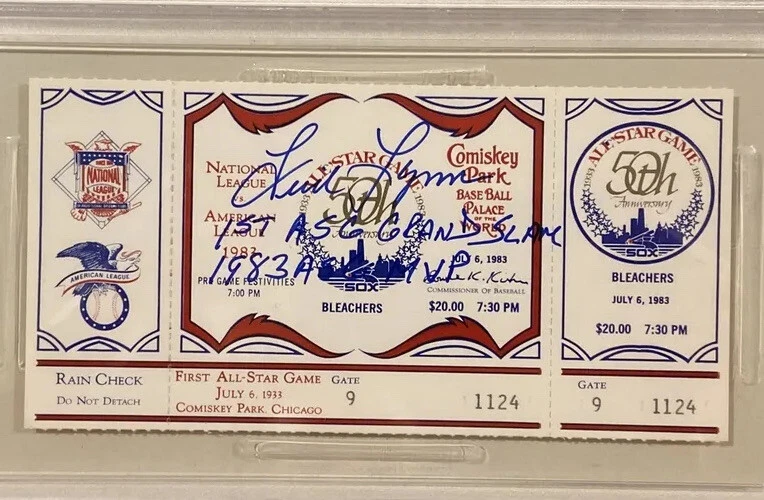 NATIONAL
LEAGUE
AMERICAN LEAGUE
RAIN CHECK
DO NOT DETACH
NATIONAL
LEAGUE
VS
AMERICAN
LEAGUE
1983
PRE GAME FESTIVITIES
7:00 PM
ALL-STAR GAME
1933 1983
50th
Anniversary
SOX
BLEACHERS
Comiskey
Park
BASEBALL
PALACE
OF THE
WORLD
JULY 6, 1983
COMMISSIONER OF BASEBALL
$20.00 7:30 PM
Fred Lynn
1ST ASG GRAND SLAM
1983 MVP
FIRST ALL-STAR GAME
JULY 6, 1933
COMISKEY PARK, CHICAGO
GATE
9
1124
ALL-STAR GAME
1933 1983
50th
Anniversary
SOX
BLEACHERS
JULY 6, 1983
$20.00 7:30 PM
GATE
9 1124